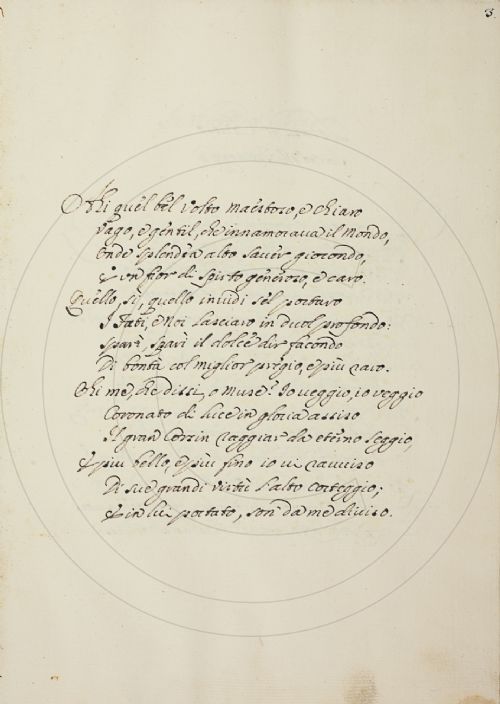 3
Ohi quel bel Volto maestoso, e chiaro
Vago, e gentil, che innamorava il Mondo,
Onde splendea alto saver giocondo,
E un fior di Spirto generoso, e caro.
Quello, sì, quello invidi sel portaro
I Fati, e Noi lasciaro in duol profondo:
Sparì, Sparì il dolce dir facondo
Di bontà col miglior pregio, e più raro.
Ohi me, che dissi, o Muse? Io veggio, io veggio
Coronato di luce in gloria assiso
Il gran Corsin raggiar da eterno Seggio,
E più bello, e più fino io vi ravviso
Di sue grandi virtù l'alto Corteggio;
E in lui portato, son da me diviso.